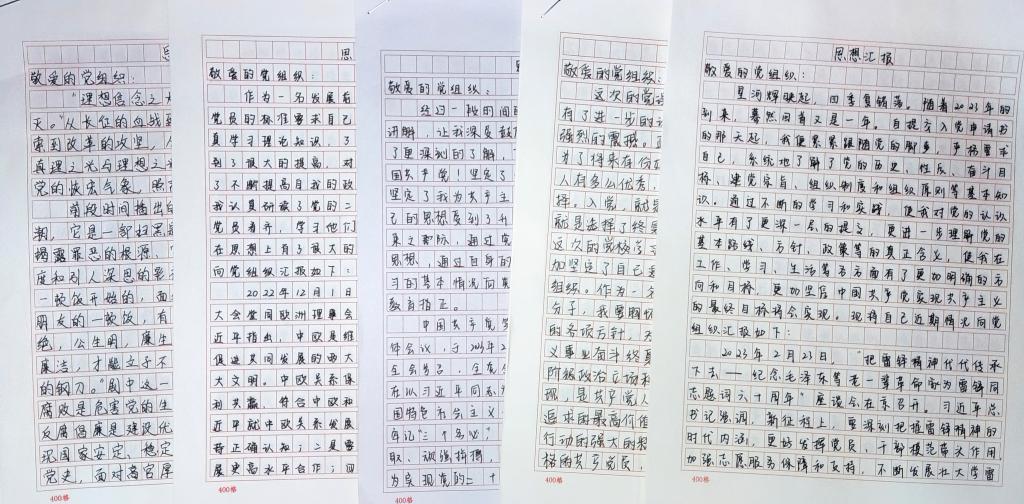 思
敬爱的党组织：
"理想信念之火
灭。"从长征的血战到
索到改革的攻坚，人
真理之光与理想之
党的恢宏气象，照
前段时间播出的
朝，它是一部扫黑
揭露罪恶的根源、
度和引人深思的
一般饭开始的，面
朋友的一般饭，有
绝，公生明，廉生
廉洁，才能立于不
的钢刀。"剧中这一
腐败是危害党的生
反腐倡廉是建设优
现国家安定、稳定
党史，面对高官厚
400格
思
敬爱的党组织：
作为一名发展
党员的标准要求自己
真学习理论知识，了
到了很大的提高，对
了不断提高自我的政
我认真研读了党的二
党员看齐，学习他们
在思想上有了很大的
向党组织汇报如下：
2022年12月1日
大会堂同欧洲理事会
近平指出，中欧是维
促进共同发展的两大
大文明。中欧关系保
利共赢，符合中欧和
近平就中欧关系发展
持正确认知；二是
展更高水平合作；四
400格
敬爱的党组织：
经过一段时间
讲解，让我深受鼓
了更深刻的了解，
国共产党！坚定了
坚定了我为共产主
己的思想受到了升
束之际，通过
思想，通过自身的
习的基本情况向
教育指正。
中国共产党
体会议，于2023年2
全会
在以习近平同志
国特色社会主义
牢记"三个务必"
取、诚强拼搏，
为实现党的二十
400格
敬爱的党组织：
这次的党
有了进一步的
强烈的震撼。
为了将来在份
人有多么优秀，
择。入党，就是
就是选择了终
这次的党校学习
加坚定了自己
组织。作为一
分子，我要胸怀
的各项方针，
义事业奋斗终
阶级政治立场和
现，是共产党人
追求的最高价值
行动的强大的
格的共产党员，
400格
思想汇报
敬爱的党组织：
星河辉映起，四季复错落，随着2023年的
到来，蓦然回首又是一年。自提交入党申请书
的那天起，我便紧紧跟随党的脚步，严格要求
自己，系统地了解了党的历史、性质、奋斗目
标、建党宗旨、组织制度和组织原则等基本知
识。通过不断的学习和实践，使我对党的认识
水平有了更深一层的提交，更进一步理解党的
基本路线、方针、政策等的真正含义，使我在
工作、学习、生活等各方面有了更加明确的方
向和目标，更加坚信中国共产党实现共产主义
的最终目标将会实现。现将自己近期情况向党
组织汇报如下：
2023年2月23日，"把雷锋精神代代传承
下去——纪念毛泽东等老一辈革命家为雷锋同
志题词六十周年"座谈会在京召开。习近平总
书记强调，新征程上，要深刻把握雷锋精神的
时代内涵，更好发挥党员、干部模范带头作用，
加强志愿服务保障和支持，不断发展壮大学雷
400格